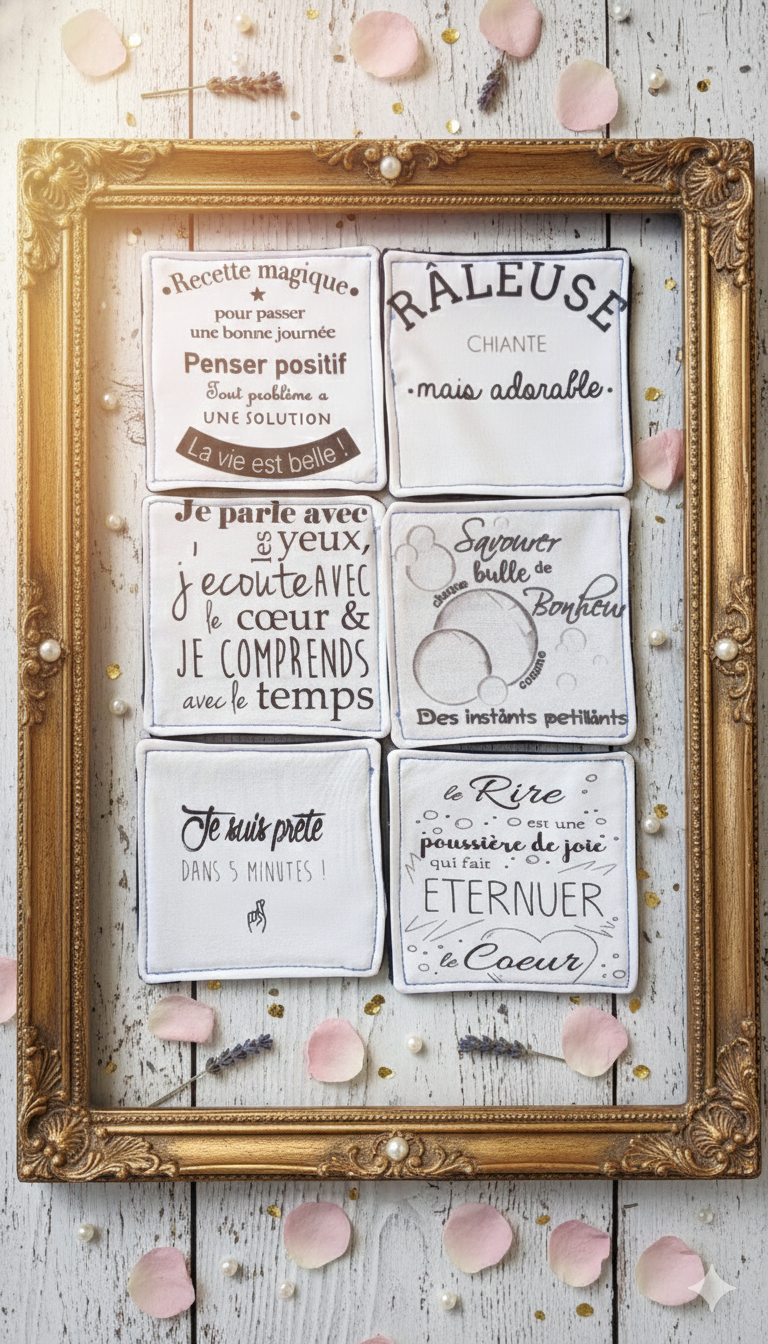 •Recette magique•
pour passer
une bonne journée
Penser positif
Tout problème a
UNE SOLUTION
La vie est belle !
RÂLEUSE
CHIANTE
•mais adorable•
Je parle avec
les yeux,
j'ecoute AVEC
le cœur &
JE COMPRENDS
avec le temps
Savourer
chaque bulle de
Bonheur
comme
Des instants petillants
Je suis prête
DANS 5 MINUTES !
le Rire
est une
poussière de joie
qui fait
ETERNUER
le Coeur